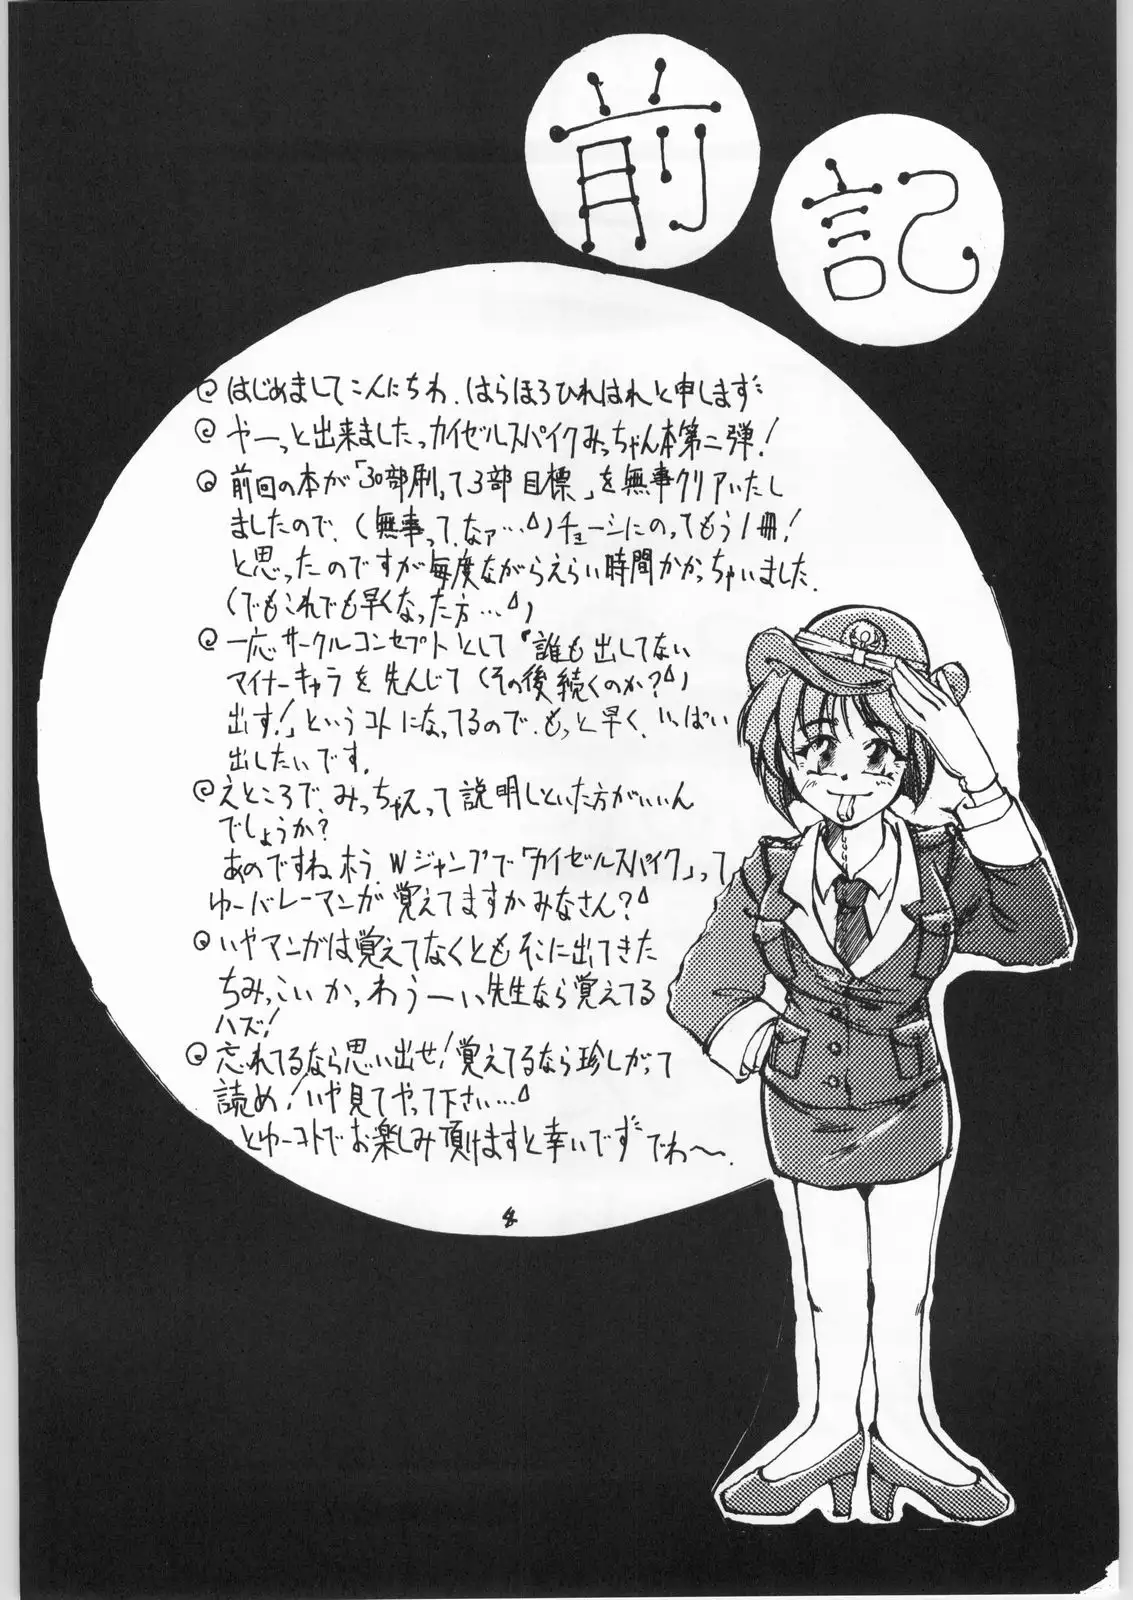 前記
はじめましてこんにちわ.はらほろひれはれと申しますﾞ
やーっと出来ましたっカイゼルスパイクみっちゃん本第二弾!
前回の本が「30部刷って3部目標」を無事クリアいたし
ましたので、(無事って、なァ…)チョーシにのってもう1冊!
と思ったのですが毎度ながらえらい時間かかっちゃいました.
(でもこれでも早くなった方…)
一応サークルコンセプトとして「誰も出してない
マイナーキャラを先んじて(その後続くのか?)
出す!」というコトになってるので、もっと早く、いっぱい
出したいです.
えところで、みっちゃんって説明しといた方がいいん
でしょうか?
あのですねホラ、Wジャンプで「カイゼルスパイク」って
ゆーバレーマンガ覚えてますかみなさん?
いやマンガは覚えてなくともそこに出てきた
ちみっこいかっわうーい先生なら覚えてる
ハズ!
忘れてるなら思い出せ!覚えてるなら珍しがって
読め!いや見てやって下さい…
とゆーコトでお楽しみ頂けますと幸いですﾞでわ〜.
4